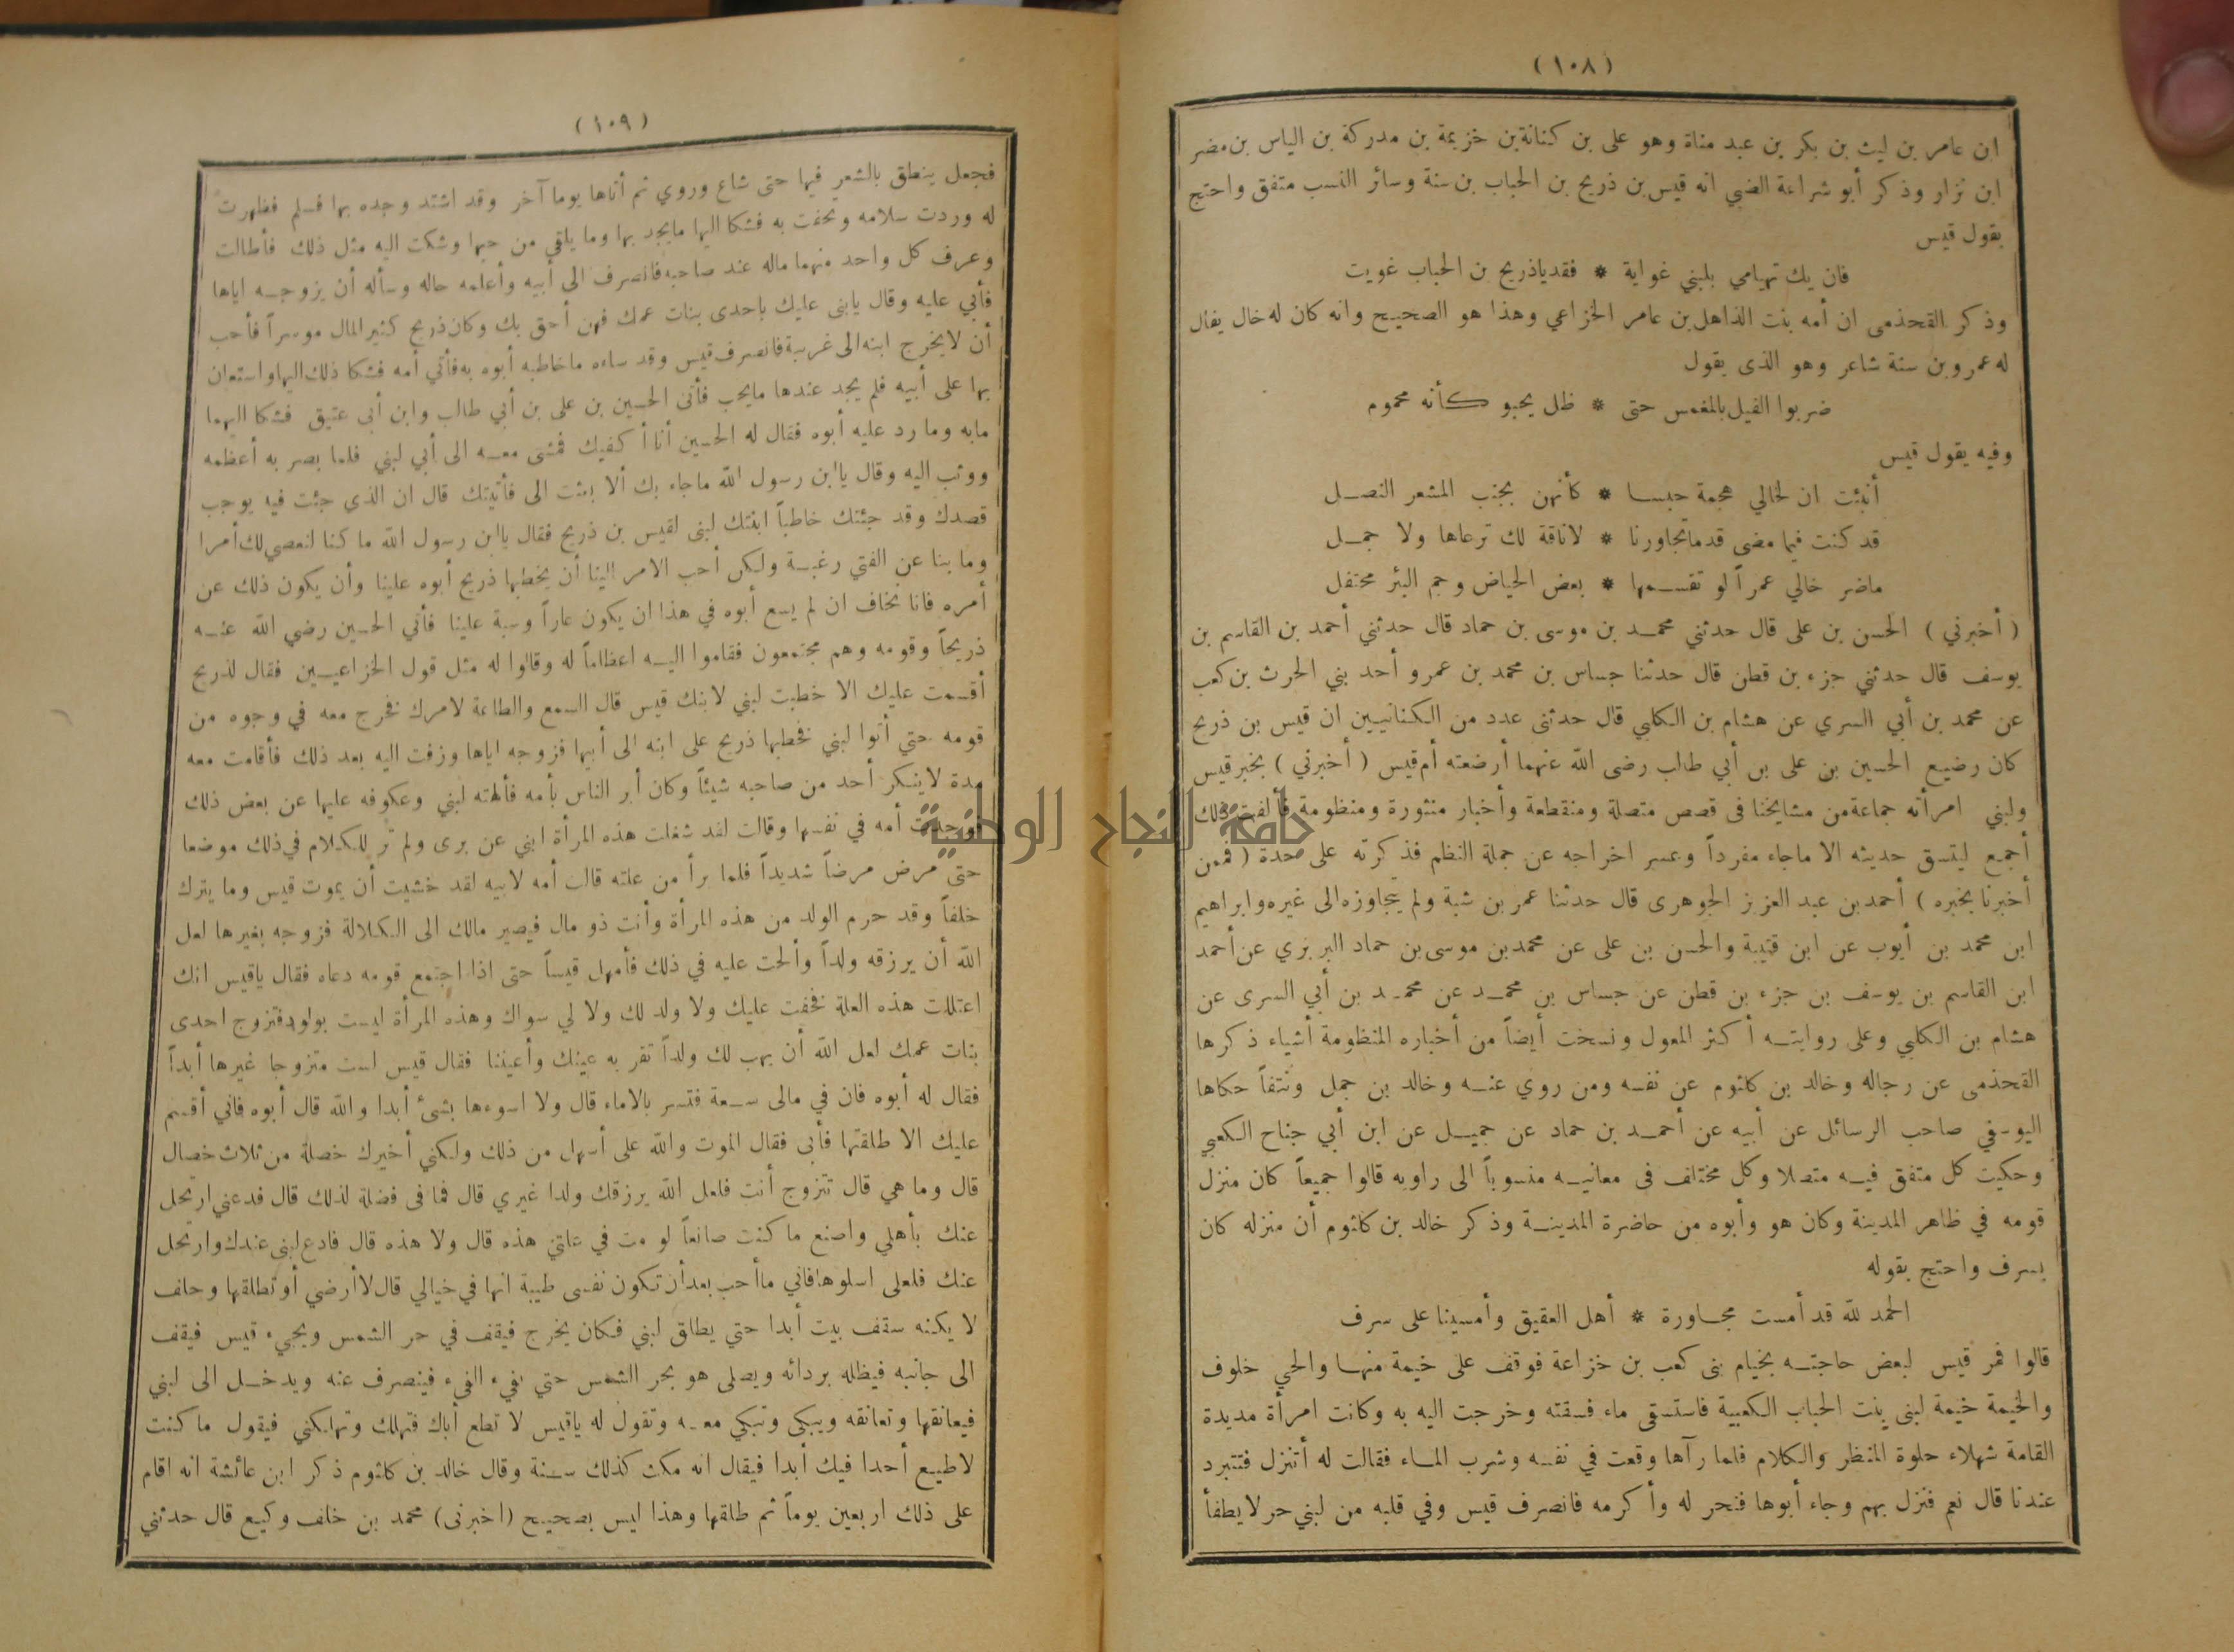 (١٠٨)
ابن عامر بن ليث بن بكر بن عبد مناة وهو على بن كنانة بن خزيمة بن مدركة بن الياس بن مضر
ابن نزار وذكر أبو شراعة الضبي انه قيس بن ذريح بن الحباب بن سنة وسائر النسب متفق واحتج
بقول قيس
فان يك تهيامي بلبني غواية * فقد ياذريح بن الحباب غويت
وذكر القحذمى ان أمه بنت الذاهل بن عامر الخزاعي وهذا هو الصحيح وانه كان له خال يقال
له عمرو بن سنة شاعر وهو الذى يقول
ضربوا الفيل بالمغمس حتى * ظل يحبو كأنه محموم
وفيه يقول قيس
أنبئت ان لخالي هجمة حبسا * كأنهن بجنب المشعر النصل
قد كنت فيما مضى قدما تجاورنا * لا ناقة لك ترعاها ولا جمل
ماضر خالي عمراً لو تقسمها * بعض الحياض وجم البئر محتفل
(أخبرني) الحسن بن على قال حدثني محمد بن موسى بن حماد قال حدثني أحمد بن القاسم بن
يوسف قال حدثني جزء بن قطن قال حدثنا جساس بن محمد بن عمرو أحد بني الحرث بن كعب
عن محمد بن أبي السري عن هشام بن الكلبي قال حدثنى عدد من الكنانيين ان قيس بن ذريح
كان رضيع الحسين بن على بن أبي طالب رضى الله عنهما أرضعته أم قيس (أخبرني) بخبر قيس
ولبني امرأته جماعة من مشايخنا فى قصص متصلة ومنقطعة وأخبار منثورة ومنظومة فألفت ذلك
أجمع ليتسق حديثه الا ماجاء مفرداً وعسر اخراجه عن جملة النظم فذكرته على حدة (فممن
أخبرنا بخبره) أحمد بن عبد العزيز الجوهرى قال حدثنا عمر بن شبة ولم يتجاوزه الى غيره وابراهيم
ابن محمد بن أيوب عن ابن قتيبة والحسن بن على عن محمد بن موسى بن حماد البربري عن أحمد
ابن القاسم بن يوسف بن جزء بن قطن عن جساس بن محمد عن محمد بن أبي السرى عن
هشام بن الكلبي وعلى روايته أكثر المعول ونسخت أيضاً من أخباره المنظومة أشياء ذكرها
القحذمى عن رجاله وخالد بن كلثوم عن نفسه ومن روي عنه وخالد بن جمل ونتفاً حكاها
اليوسفي صاحب الرسائل عن أبيه عن أحمد بن حماد عن جميل عن ابن أبي جناح الكعبي
وحكيت كل متفق فيه متصلا وكل مختلف فى معانيه منسوباً الى راويه قالوا جميعاً كان منزل
قومه في ظاهر المدينة وكان هو وأبوه من حاضرة المدينة وذكر خالد بن كلثوم أن منزله كان
بسرف واحتج بقوله
الحمد لله قد أمست مجاورة * أهل العقيق وأمسينا على سرف
قالوا فمر قيس لبعض حاجته بخيام بنى كعب بن خزاعة فوقف على خيمة منها والحي خلوف
والخيمة خيمة لبنى بنت الحباب الكعبية فاستسقى ماء فسقته وخرجت اليه به وكانت امرأة مديدة
القامة شهلاء حلوة المنظر والكلام فلما رآها وقعت في نفسه وشرب الماء فقالت له أتنزل فتتبرد
عندنا قال نعم فنزل بهم وجاء أبوها فنحر له وأكرمه فانصرف قيس وفي قلبه من لبني حر لا يطفأ
(١٠٩)
فجعل ينطق بالشعر فيها حتى شاع وروي ثم أتاها يوما آخر وقد اشتد وجده بها فسلم فظهرت
له وردت سلامه وتحفت به فشكا اليها مايجد بها وما يلقي من حبها وشكت اليه مثل ذلك فأطالت
وعرف كل واحد منهما ماله عند صاحبه فانصرف الى أبيه وأعلمه حاله وسأله أن يزوجه اياها
فأبي عليه وقال يابنى عليك باحدى بنات عمك فهن أحق بك وكان ذريح كثير المال موسراً فأحب
أن لايخرج ابنه الى غريبة فانصرف قيس وقد ساءه ماخاطبه أبوه به فأتي أمه فشكا ذلك اليها واستعان
بها على أبيه فلم يجد عندها مايحب فأتى الحسين بن على بن أبي طالب وابن أبي عتيق فشكا اليهما
مابه وما رد عليه أبوه فقال له الحسين أنا أكفيك فمشى معه الى أبي لبني فلما بصر به أعظمه
ووثب اليه وقال ياابن رسول الله ماجاء بك ألا بعثت الى فأتيتك قال ان الذي جئت فيه يوجب
قصدك وقد جئتك خاطباً ابنتك لبنى لقيس بن ذريح فقال ياابن رسول الله ما كنا لنعصي لك أمرا
وما بنا عن الفتي رغبة ولكن أحب الامر الينا أن يخطبها ذريح أبوه علينا وأن يكون ذلك عن
أمره فانا نخاف ان لم يسع أبوه في هذا ان يكون عاراً وسبة علينا فأتي الحسين رضي الله عنه
ذريحاً وقومه وهم مجتمعون فقاموا اليه اعظاماً له وقالوا له مثل قول الخزاعيين فقال لذريح
أقسمت عليك الا خطبت لبني لابنك قيس قال السمع والطاعة لامرك فخرج معه في وجوه من
قومه حتي أتوا لبني فخطبها ذريح على ابنه الى أبيها فزوجه اياها وزفت اليه بعد ذلك فأقامت معه
مدة لاينكر أحد من صاحبه شيئاً وكان أبر الناس بأمه فألهته لبني وعكوفه عليها عن بعض ذلك
فوجدت أمه في نفسها وقالت لقد شغلت هذه المرأة ابني عن برى ولم تر للكلام في ذلك موضعا
حتى مرض مرضاً شديداً فلما برأ من علته قالت أمه لابيه لقد خشيت أن يموت قيس وما يترك
خلفاً وقد حرم الولد من هذه المرأة وأنت ذو مال فيصير مالك الى الكلالة فزوجه بغيرها لعل
الله أن يرزقه ولداً وألحت عليه في ذلك فأمهل قيساً حتى اذا اجتمع قومه دعاه فقال ياقيس انك
اعتللت هذه العلة فخفت عليك ولا ولد لك ولا لي سواك وهذه المرأة ليست بولود فتزوج احدى
بنات عمك لعل الله أن يهب لك ولداً تقر به عينك وأعيننا فقال قيس لست متزوجا غيرها أبداً
فقال له أبوه فان في مالى سعة فتسر بالاماء قال ولا اسوءها بشئ أبدا والله قال أبوه فاني أقسم
عليك الا طلقتها فأبى فقال الموت والله على أسهل من ذلك ولكني أخيرك خصلة من ثلاث خصال
قال وما هي قال تتزوج أنت فلعل الله يرزقك ولدا غيري قال فما فى فضلة لذلك قال فدعني ارتحل
عنك بأهلي واصنع ما كنت صانعاً لو مت في علتي هذه قال ولا هذه قال فادع لبنى عندك وارتحل
عنك فلعلى اسلوها فاني ماأحب بعد أن تكون نفسى طيبة انها في خيالي قال لاأرضي أو تطلقها وحلف
لا يكنه سقف بيت أبدا حتي يطلق لبني فكان يخرج فيقف في حر الشمس ويجيء قيس فيقف
الى جانبه فيظله بردائه ويصلى هو بحر الشمس حتي يفيء الفيء فينصرف عنه ويدخل الى لبني
فيعانقها وتعانقه ويبكى وتبكي معه وتقول له ياقيس لا تطع أباك فتهلك وتهلكني فيقول ما كنت
لاطيع أحدا فيك أبدا فيقال انه مكث كذلك سنة وقال خالد بن كلثوم ذكر ابن عائشة انه اقام
على ذلك اربعين يوماً ثم طلقها وهذا ليس بصحيح (اخبرنى) محمد بن خلف وكيع قال حدثني
جامعة النجاح الوطنية